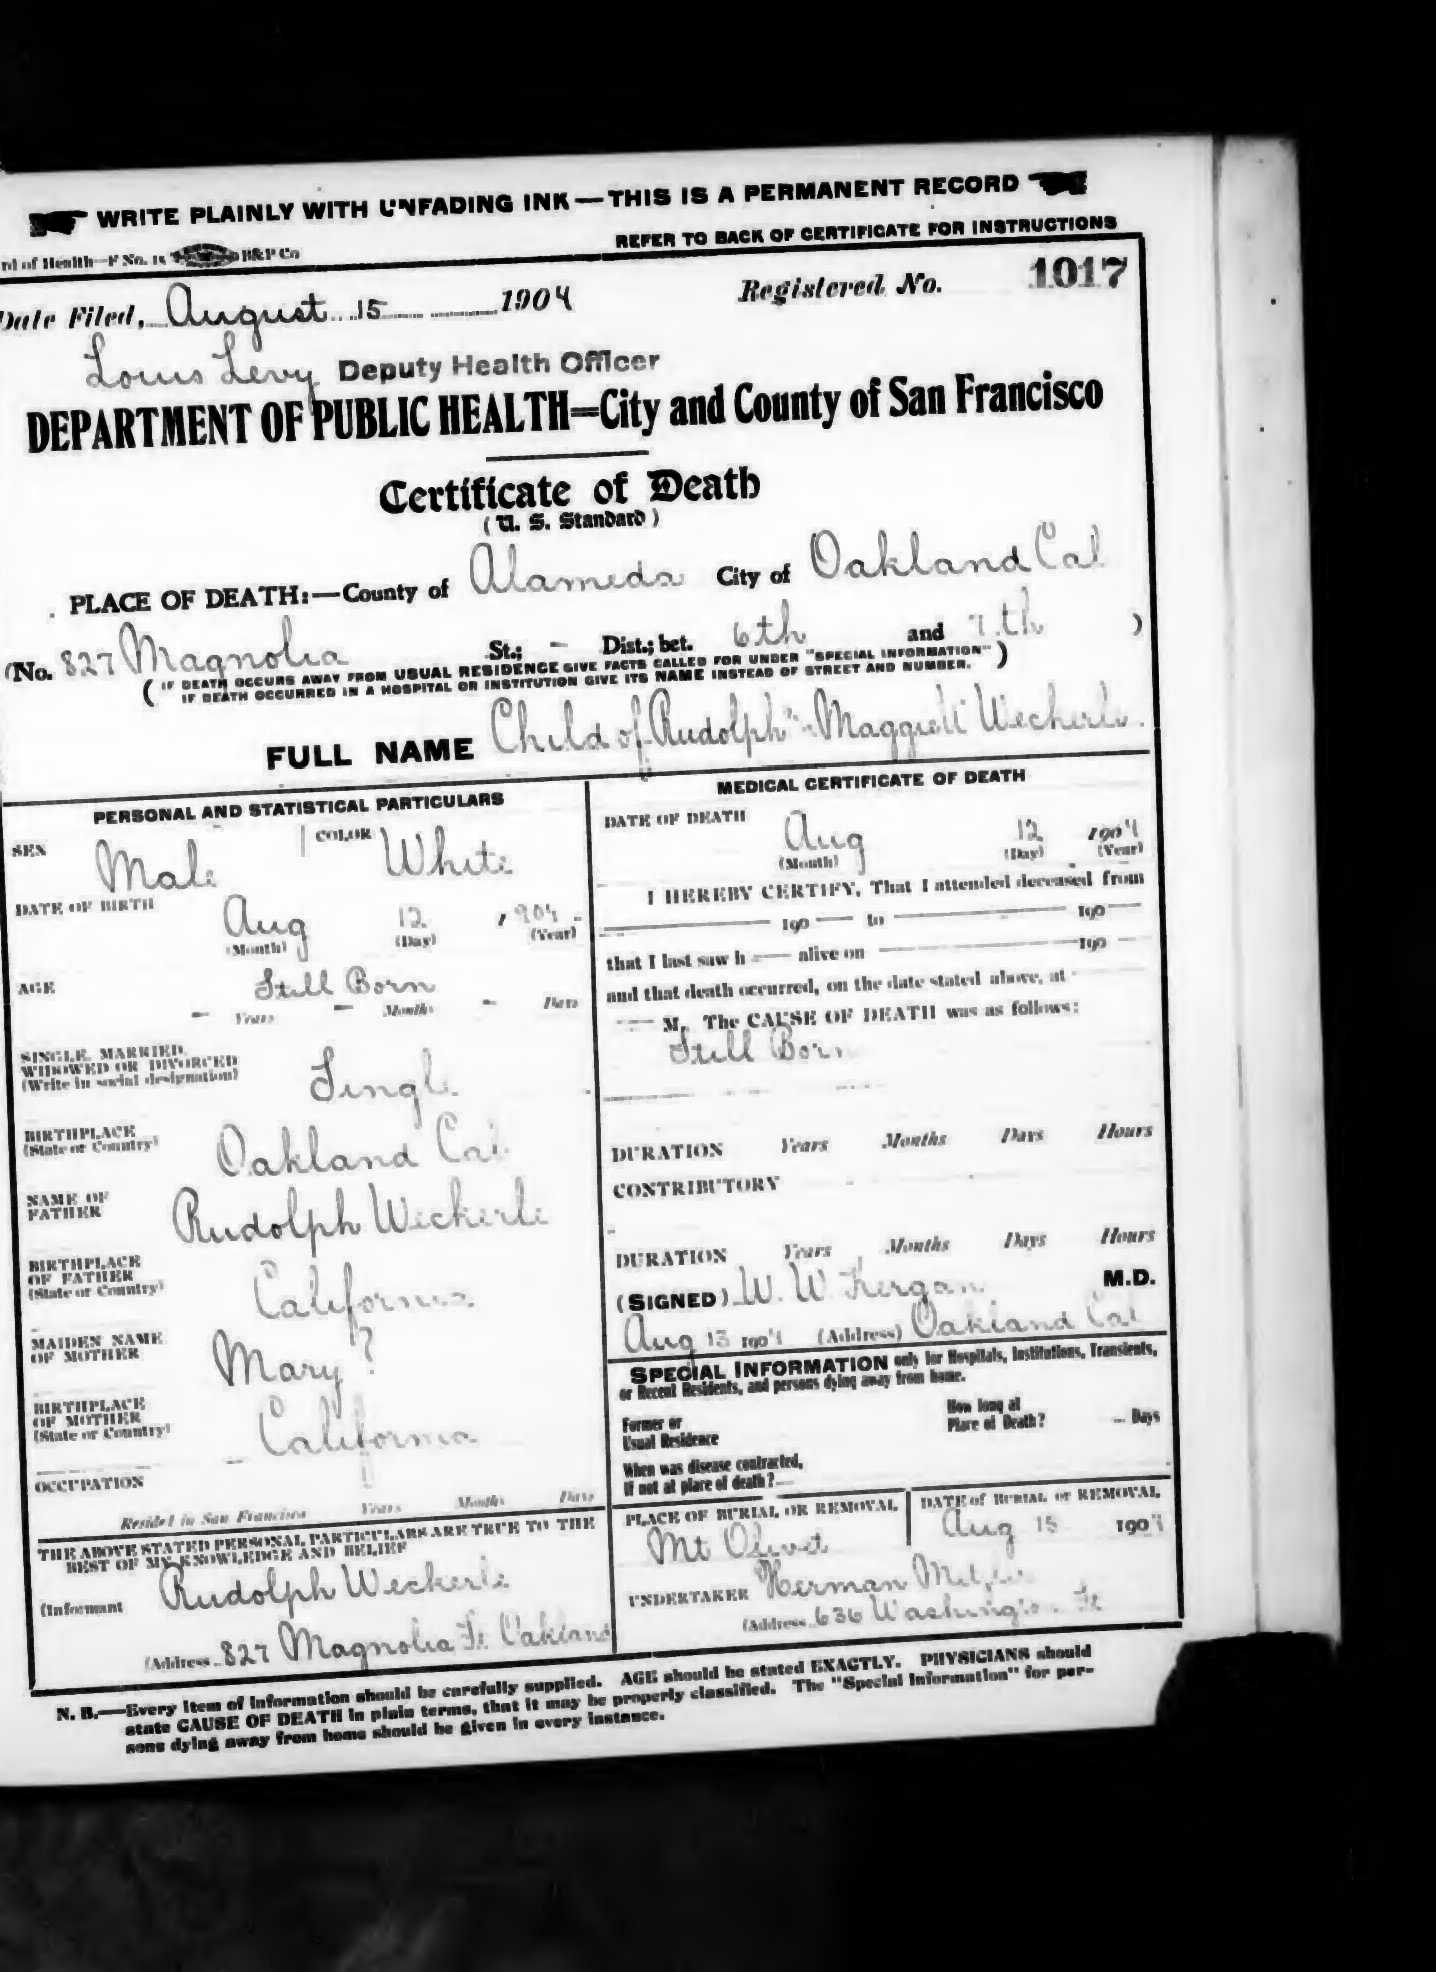 WRITE PLAINLY WITH UNFADING INK — THIS IS A PERMANENT RECORD
rd of Health—F No. B&P Co
REFER TO BACK OF CERTIFICATE FOR INSTRUCTIONS
Date Filed, August 15 1904 Registered No. 1017
Louis Levy Deputy Health Officer
DEPARTMENT OF PUBLIC HEALTH=City and County of San Francisco
Certificate of Death
(U. S. Standard)
PLACE OF DEATH:—County of Alameda City of Oakland Cal
(No. 827 Magnolia St.; – Dist.; bet. 6th and 7th )
( IF DEATH OCCURS AWAY FROM USUAL RESIDENCE GIVE FACTS CALLED FOR UNDER "SPECIAL INFORMATION" )
IF DEATH OCCURRED IN A HOSPITAL OR INSTITUTION GIVE ITS NAME INSTEAD OF STREET AND NUMBER.
FULL NAME Child of Rudolph Weckerle
PERSONAL AND STATISTICAL PARTICULARS
SEX Male COLOR White
DATE OF BIRTH Aug 12 1904
(Month) (Day) (Year)
AGE Still Born
– Years – Months – Days
SINGLE, MARRIED,
WIDOWED OR DIVORCED
(Write in social designation) Single
BIRTHPLACE
(State or Country) Oakland Cal
NAME OF
FATHER Rudolph Weckerle
BIRTHPLACE
OF FATHER
(State or Country) California
MAIDEN NAME
OF MOTHER Mary ?
BIRTHPLACE
OF MOTHER
(State or Country) California
OCCUPATION
Resided in San Francisco Years Months Days
THE ABOVE STATED PERSONAL PARTICULARS ARE TRUE TO THE
BEST OF MY KNOWLEDGE AND BELIEF
(Informant Rudolph Weckerle
(Address 827 Magnolia St Oakland
MEDICAL CERTIFICATE OF DEATH
DATE OF DEATH Aug 12 1904
(Month) (Day) (Year)
I HEREBY CERTIFY, That I attended deceased from
190 to 190
that I last saw h alive on 190
and that death occurred, on the date stated above, at
M. The CAUSE OF DEATH was as follows:
Still Born
DURATION Years Months Days Hours
CONTRIBUTORY
DURATION Years Months Days Hours
(SIGNED) W. W. Kergan M.D.
Aug 13 1904 (Address) Oakland Cal
SPECIAL INFORMATION only for Hospitals, Institutions, Transients,
or Recent Residents, and persons dying away from home.
Former or
Usual Residence
How long at
Place of Death? Days
When was disease contracted,
If not at place of death?
PLACE OF BURIAL OR REMOVAL
Mt Olivet
DATE of BURIAL or REMOVAL
Aug 15 1904
UNDERTAKER Herman
(Address 636 Washington St
N. B.—Every item of information should be carefully supplied. AGE should be stated EXACTLY. PHYSICIANS should
state CAUSE OF DEATH in plain terms, that it may be properly classified. The "Special Information" for per-
sons dying away from home should be given in every instance.